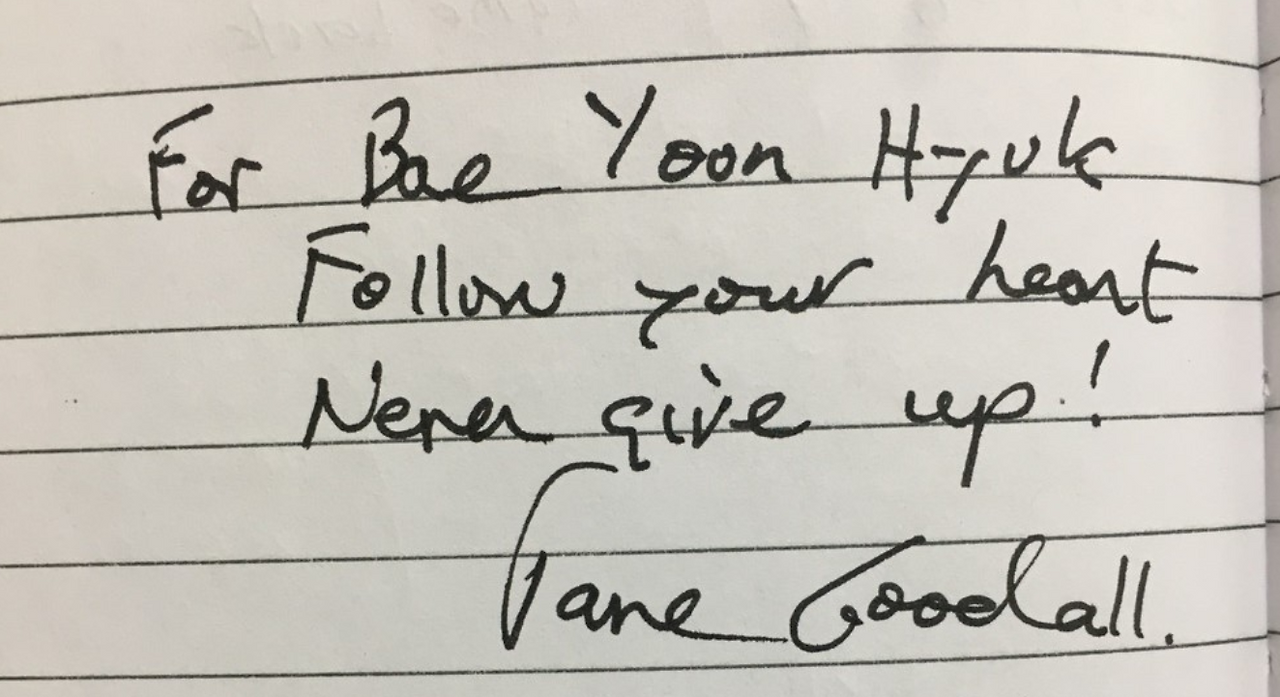 For Bae Yoon Hyuk
Follow your heart
Never give up!
Jane Goodall.